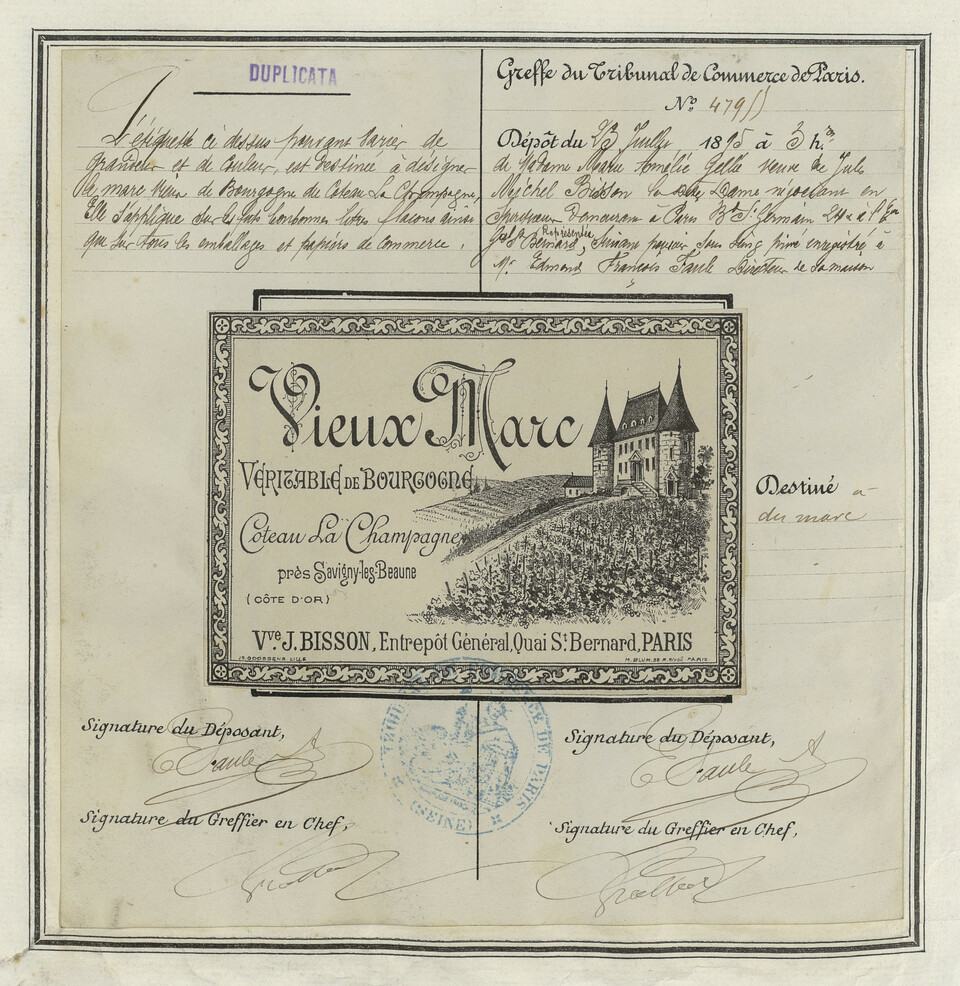 DUPLICATA
L'étiquette ci dessus pouvant varier de
grandeur et de couleur, est destinée à désigner
le marc vieux de Bourgogne du Coteau La Champagne,
Elle s'applique sur les futs bonbonnes litres flacons ainsi
que sur tous les emballages et papiers de commerce.
Greffe du Tribunal de Commerce de Paris.
No 479
Dépôt du 23 Juillet 1895 à 3 h.
de Madame Marie Amélie Gellé veuve de Jules
Michel Bisson la dite Dame négociant en
Spiritueux demeurant à Paris Bd St Germain à l'
St Bernard, Représentée suivant pouvoir sous seing privé enregistré à
Mr Edmond François Faule Directeur de sa maison
Vieux Marc
VÉRITABLE DE BOURGOGNE
Coteau La Champagne
près Savigny-les-Beaune
(CÔTE D'OR)
Vve J. BISSON, Entrepôt Général, Quai St Bernard, PARIS
LILLE
M. BLUM. R. RIVOLI PARIS
Destiné à
du marc
TRIBUNAL DE COMMERCE DE PARIS
(SEINE)
Signature du Déposant,
E Faule
Signature du Greffier en Chef,
Signature du Déposant,
E Faule
Signature du Greffier en Chef,